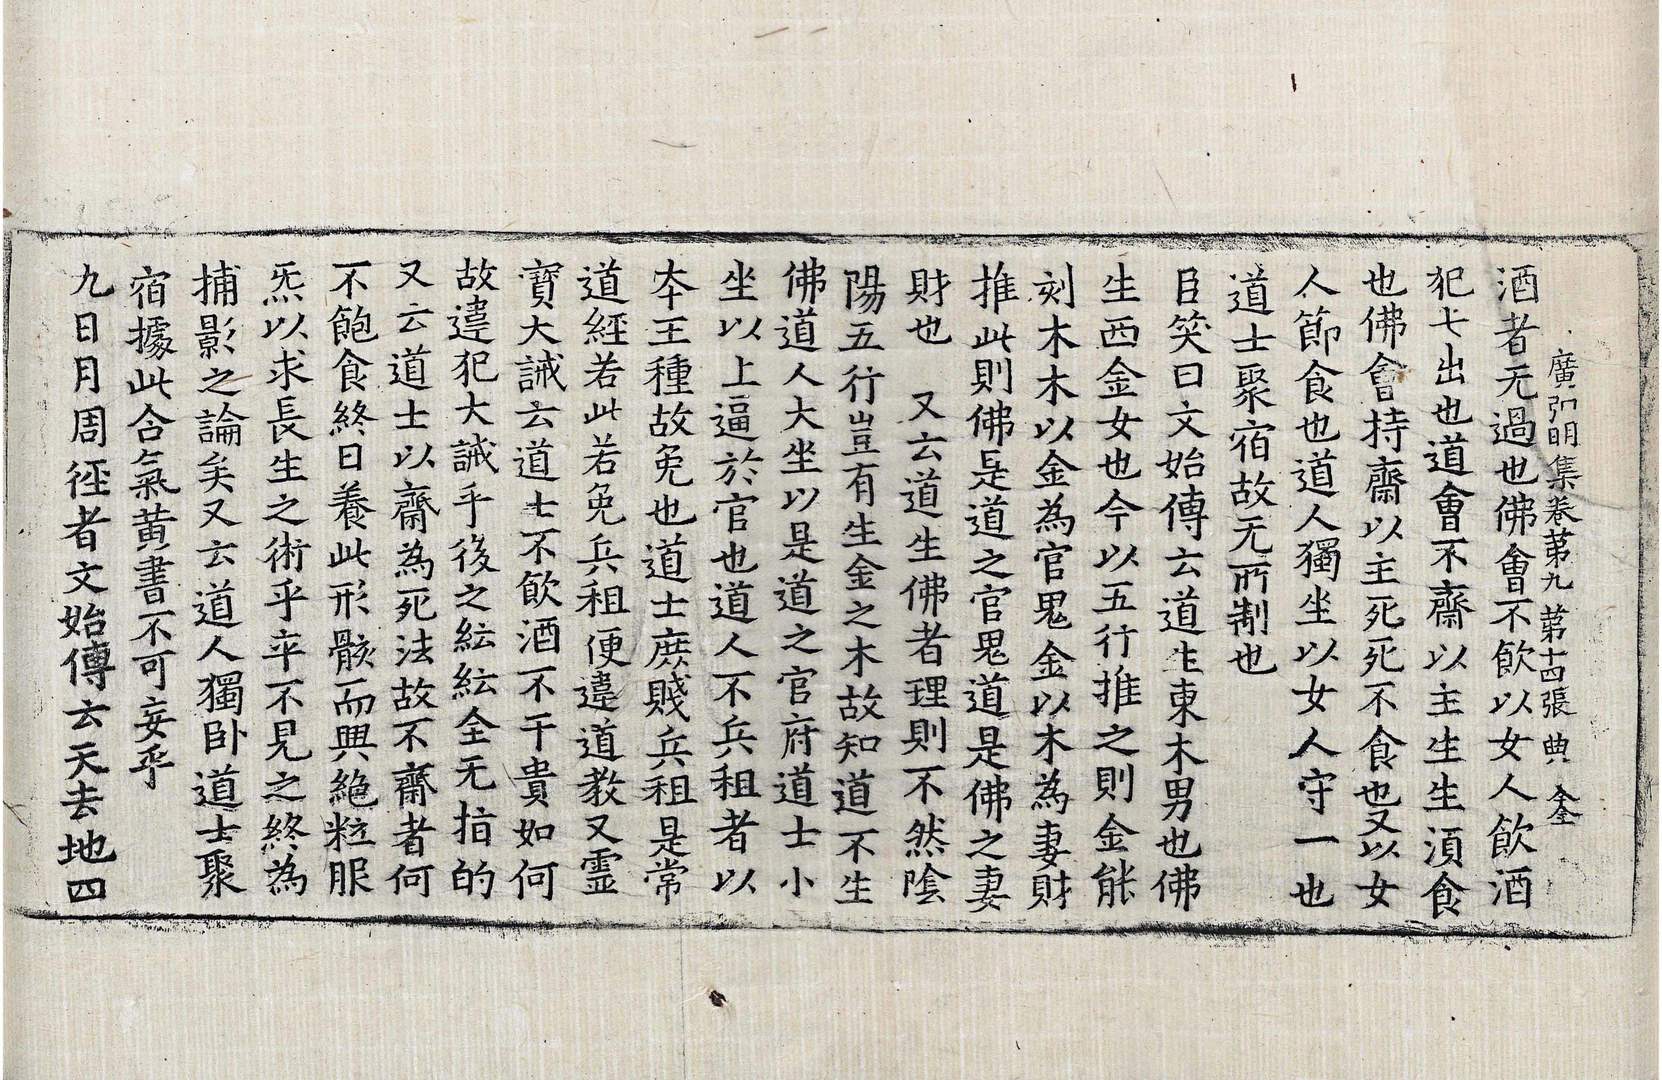 廣弘明集卷第九 第十四張 典 𨥤
酒者无過也佛會不飲以女人飲酒
犯七出也道會不齋以主生生湏食
也佛會持齋以主死死不食也又以女
人節食也道人獨坐以女人守一也
道士聚宿故无所制也
臣笑曰文始傳云道生東木男也佛
生西金女也今以五行推之則金能
刻木木以金為官鬼金以木為妻財
推此則佛是道之官鬼道是佛之妻
財也 又云道生佛者理則不然陰
陽五行豈有生金之木故知道不生
佛道人大坐以是道之官府道士小
坐以上逼於官也道人不兵租者以
本王種故免也道士庶賤兵租是常
道經若此若免兵租便違道教又霊
寶大誡云道士不飲酒不干貴如何
故違犯大誡乎後之紜紜全无指的
又云道士以齋為死法故不齋者何
不飽食終日養此形骸而興絶粒服
炁以求長生之術乎卒不見之終為
捕影之論矣又云道人獨卧道士聚
宿據此合氣黃書不可妄乎
九日月周徑者文始傳云天去地四